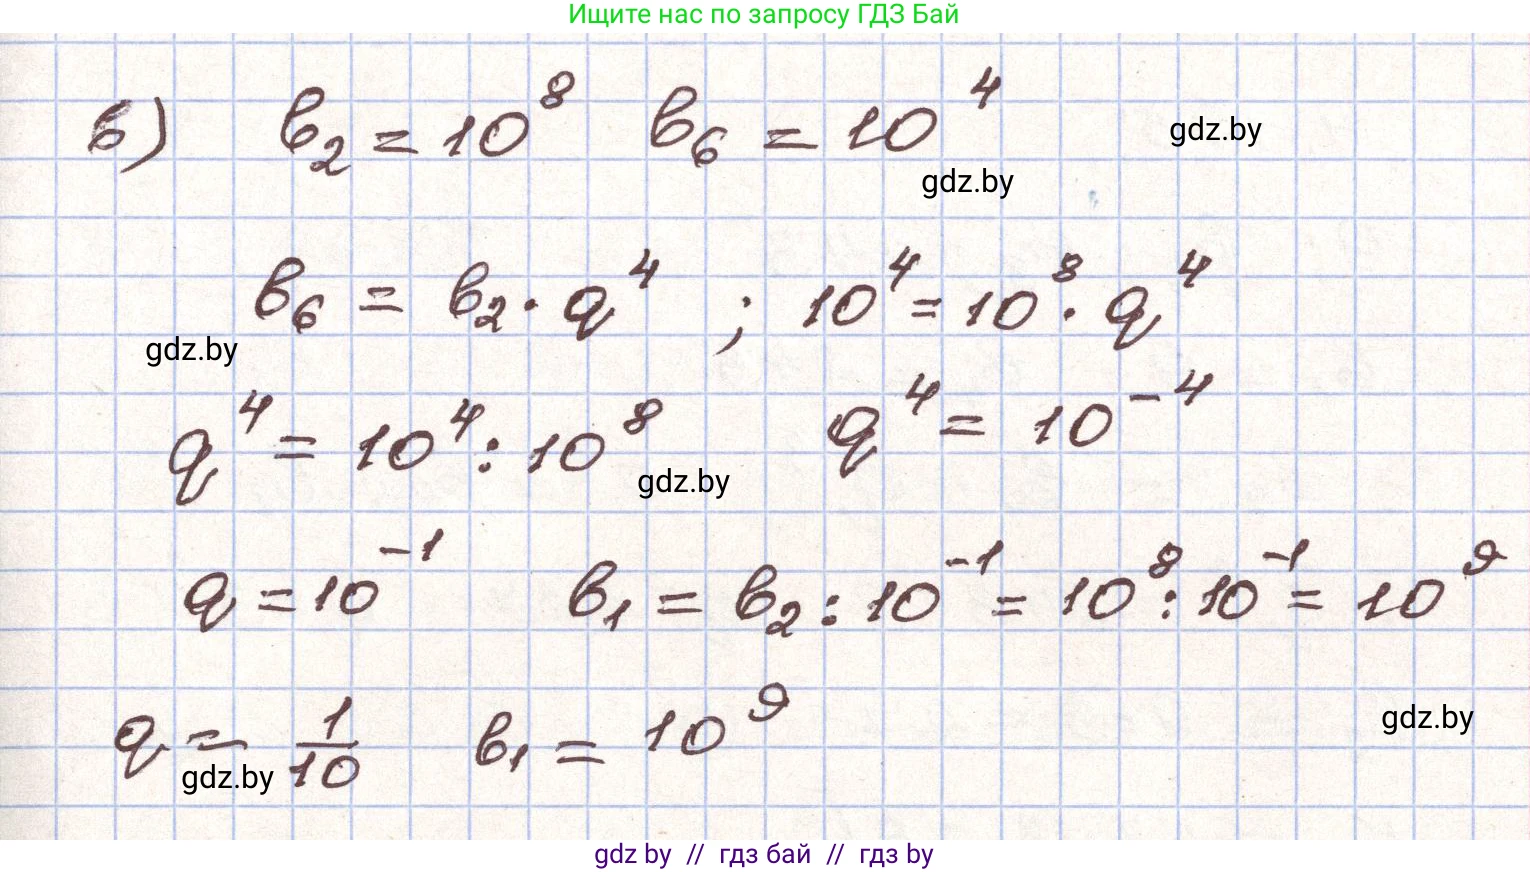 Ищите нас по запросу ГДЗ Бай
в) b₂ = 10⁸ b₆ = 10⁴
gdz.by
gdz.by
b₆ = b₂ · q⁴ ; 10⁴ = 10⁸ · q⁴
gdz.by
q⁴ = 10⁴ : 10⁸ q⁴ = 10⁻⁴
gdz.by
q = 10⁻¹ b₁ = b₂ : 10⁻¹ = 10⁸ : 10⁻¹ = 10⁹
q = 1/10 b₁ = 10⁹
gdz.by
gdz.by
gdz by // гдз бай // гдз by